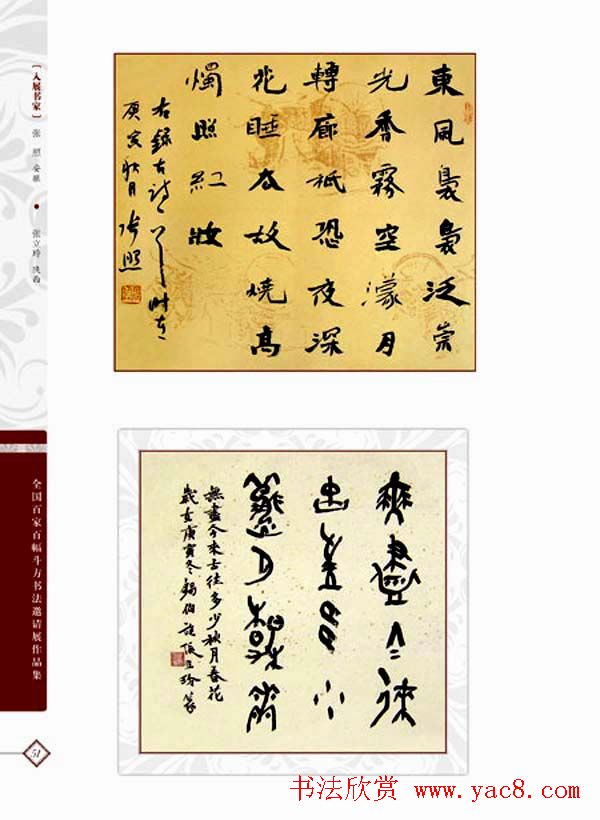 [入展书家] 张 照 安徽 • 张立玲 陕西
全国百家百幅斗方书法邀请展作品集
51
東風裊裊泛崇
光香霧空濛月
轉廊祇恐夜深
花睡去故燒高
燭照紅妝
右錄古詩一首时在
庚寅秋月張照
無盡今來
古往多少
秋月春花
無盡今來古往多少秋月春花
歲在庚寅冬錫伯族張立玲篆
书法欣赏 www.yac8.com